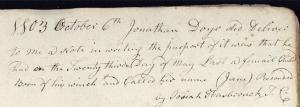 1803 October 6th Jonathan Doyo did Deliver
to me a Note in writing the purport of it was that he
had on the Twenty third Day of May Last a female Child
Born of his wench and Called his name (Jane) Recorded
by Josiah Hasbrouck T. C.